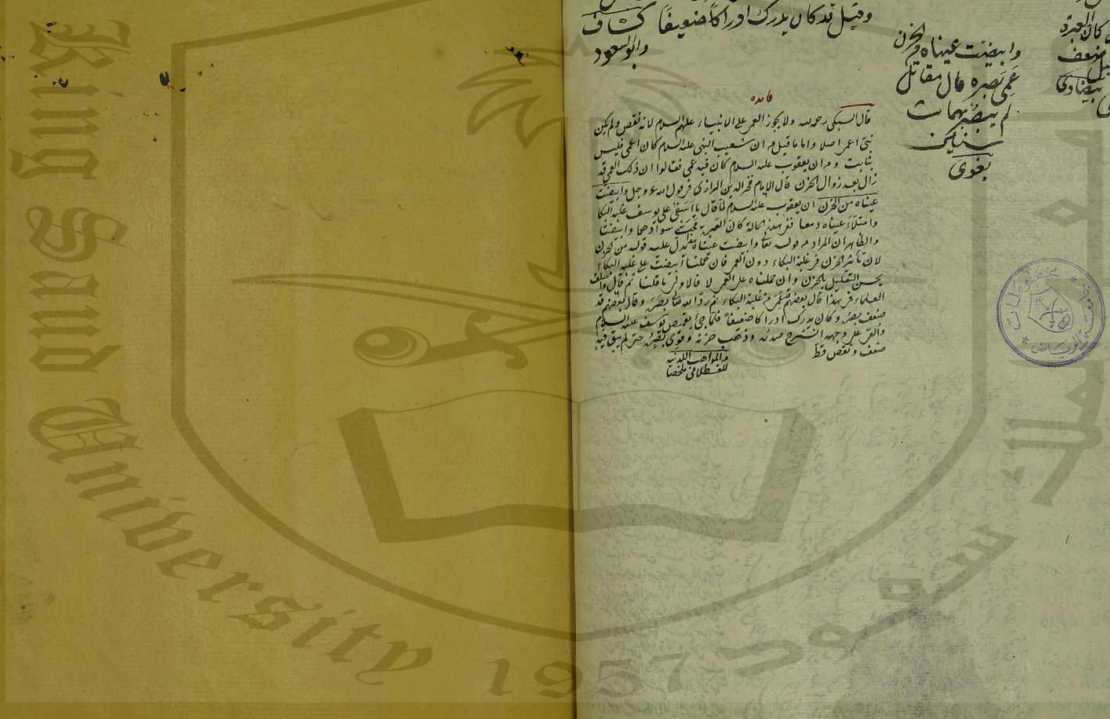 وقيل قد كان يدرك ادراكا ضعيفا كشاف
وابو السعود
وابيضت عيناه من الحزن
عمي بصره قال مقاتل
لم يبصر بهما ست
سنين
بغوي
فائده
قال السبكي رحمه الله ولا يجوز العمى على الانبياء عليهم السلام لانه نقص ولم يكن
نبي اعمى اصلا واما ما قيل من ان شعيب النبي عليه السلام كان اعمى فليس
بثابت و من ان يعقوب عليه السلام كان فيه عمى فقالوا ان ذلك العمى قد
زال بعد زوال الحزن قال الامام فخر الدين الرازي في قول الله عز وجل وابيضت
عيناه من الحزن ان يعقوب عليه السلام لما قال يا اسفى على يوسف غلبه البكا
وامتلأ عيناه دمعا ففي هذه الحالة كان العبرة سوادهما وابيضتا
والظاهر ان المراد من قوله تعا وابيضت عيناه يدل عليه قوله من الحزن
لان تأثير الحزن في غلبة البكاء دون العمى فان حملنا ابيضت على غلبة البكاء
يحسن التعليل بالحزن وان حملناه على العمى لا فالاولى ما قلنا ثم قال واختلف
العلماء في هذا قال بعضهم عمي من غلبة البكاء ثم رد الله تعا بصره وقال بعضهم قد
ضعف بصره وكان يدرك ادراكا ضعيفا فلما جئ بقميص يوسف عليه السلام
والقي على وجهه انشرح صدره وذهب حزنه وقوي بصره حتى لم يبق فيه
ضعف ونقص قط
من المواهب اللدنيه
للقسطلاني ملخصا
كان العبرة
ضعف
King Saud University 1957
جامعة الملك سعود